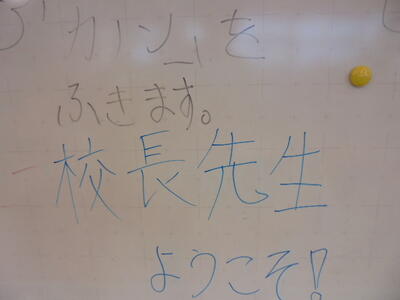 「カノン」を
ふきます。
校長先生
ようこそ!